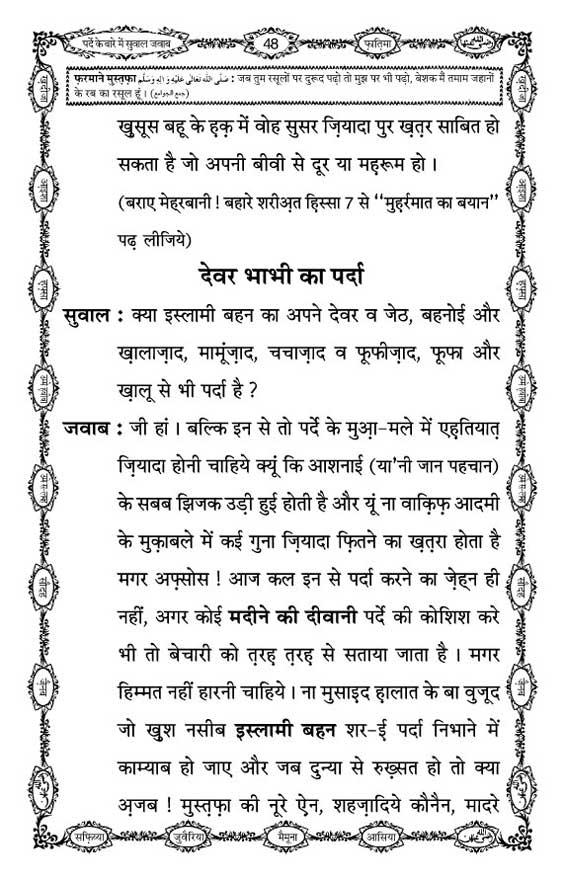 पर्दे के बारे में सुवाल जवाब
48
फ़ातिमा
फ़रमाने मुस्तफ़ा صَلَّى اللهُ تَعَالٰى عَلَيْهِ وَاٰلِهٖ وَسَلَّم : जब तुम रसूलों पर दुरूद पढ़ो तो मुझ पर भी पढ़ो, बेशक मैं तमाम जहानों
के रब का रसूल हूं । (جمع الجوامع)
खुसूस बहू के ह़क़ में वोह सुसर ज़ियादा पुर ख़त़र साबित हो
सकता है जो अपनी बीवी से दूर या महरूम हो ।
(बराए मेहरबानी ! बहारे शरीअ़त हिस्सा 7 से ‘‘मुहर्रमात का बयान’’
पढ़ लीजिये)
देवर भाभी का पर्दा
सुवाल : क्या इस्लामी बहन का अपने देवर व जेठ, बहनोई और
ख़ालाज़ाद, मामूंज़ाद, चचाज़ाद व फूफीज़ाद, फूफा और
ख़ालू से भी पर्दा है ?
जवाब : जी हां । बल्कि इन से तो पर्दे के मुआ़-मले में एहतियात़
ज़ियादा होनी चाहिये क्यूं कि आशनाई (या'नी जान पहचान)
के सबब झिजक उड़ी हुई होती है और यूं ना वाक़िफ़ आदमी
के मुक़ाबले में कई गुना ज़ियादा फ़ितने का ख़त़रा होता है
मगर अफ़्सोस ! आज कल इन से पर्दा करने का ज़ेह्न ही
नहीं, अगर कोई मदीने की दीवानी पर्दे की कोशिश करे
भी तो बेचारी को त़रह़ त़रह़ से सताया जाता है । मगर
हिम्मत नहीं हारनी चाहिये । ना मुसाइद ह़ालात के बा वुजूद
जो खुश नसीब इस्लामी बहन शर-ई पर्दा निभाने में
काम्याब हो जाए और जब दुन्या से रुख़्सत हो तो क्या
अ़जब ! मुस्तफ़ा की नूरे ऐन, शहज़ादिये कौनैन, मादरे
सफ़िय्या
जुवैरिया
मैमूना
आसिया